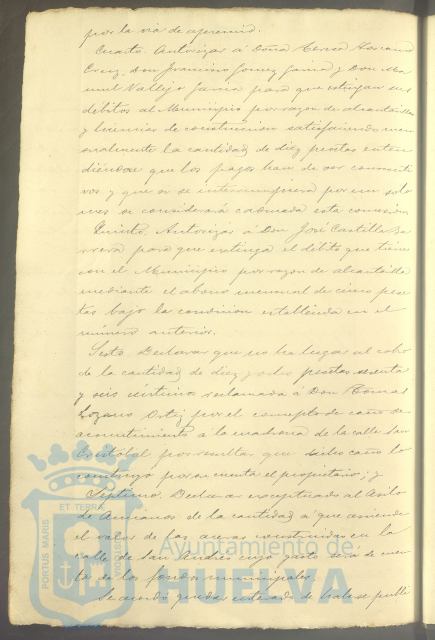 por la vía de apremio.
Cuarto. Autorizar á Doña Teresa
Cruz, Don Francisco Gomez Jaime y Don Ma
nuel Vallejo Garcia para que extingan sus
débitos al Municipio por razon de alcantarillas
y licencias de construccion satisfaciendo men
sualmente la cantidad de diez pesetas enten
diéndose que los pagos han de ser consecuti
vos y que si se interrumpiera por un solo
mes se considerará caducada esta concesion
Quinto. Autorizar á Don José Castilla
para que extinga el débito que tiene
con el Municipio por razon de alcantarilla
mediante el abono mensual de cinco pese
tas bajo la condicion establecida en el
número anterior.
Sesto. Declarar que no ha lugar al cobro
de la cantidad de diez y ocho pesetas sesenta
y seis céntimos reclamada á Don Tomas
Lozano Ortiz por el concepto de caño de
acometimiento á la cuadrona de la calle San
Cristobal por resultar que dicho caño lo
construyó por su cuenta el propietario; y
Septimo. Declarar exceptuado al Asilo
de Ancianos de la cantidad á que asciende
el valor de las aceras construidas en la
calle de San Andrés cuyo gasto será de cuen
ta de los fondos municipales.
Se acordó quedar enterado de haberse publi
PORTUS MARIS
ET TERRAE
Ayuntamiento de
HUELVA